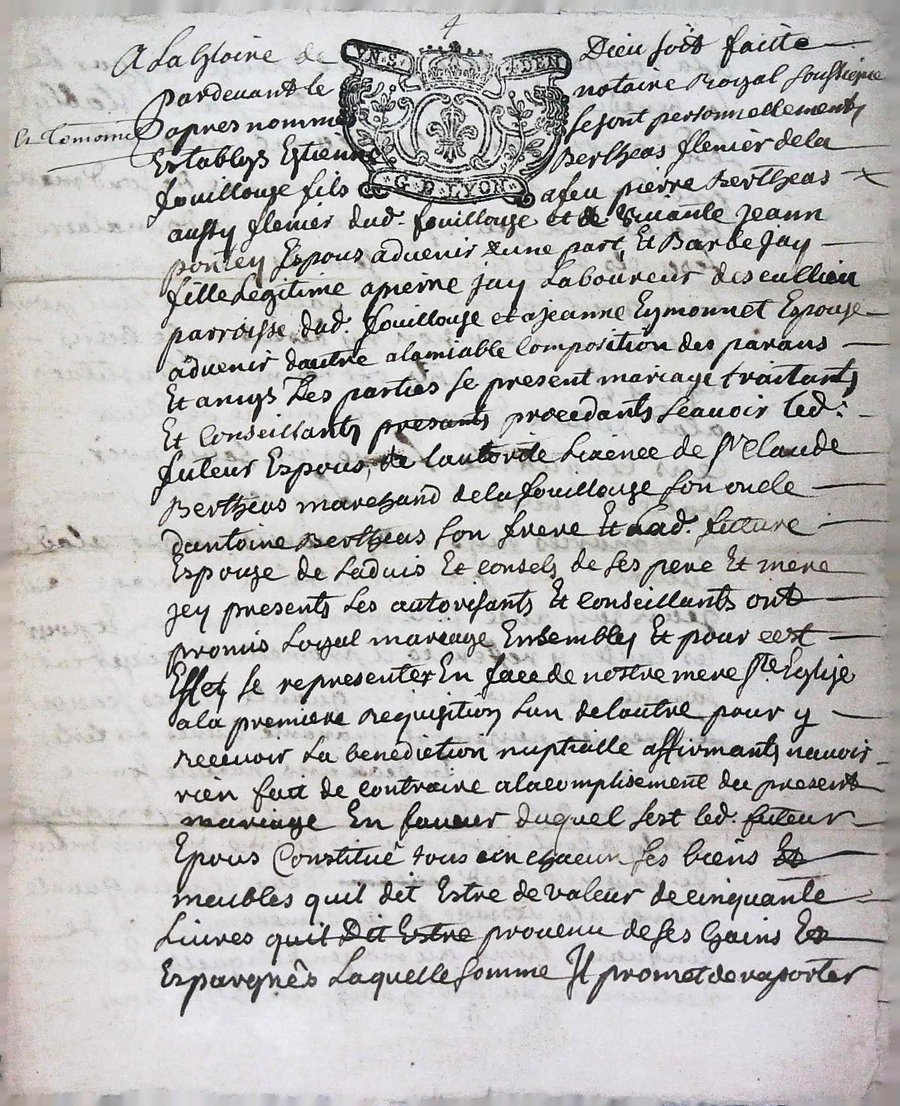 4
A La gloire de Dieu soit faitte
pardevant le notaire Royal soussigné
& temoins
VN. S. 4. DEN
G. D. LYON
apres nommé se sont personnellement
Establys Estienne Bertheas flenier dela
fouillouze fils a feu pierre Bertheas
aussy flenier dud. fouillouze et de vivante jeann
poncey Espous advenir dune part, Et Barbe Jay
fille Legitime a pierre Jay Laboureur des eullieu
parroisse dud. fouillouze et a jeanne Eymonnet Espouze
advenir dautre alamiable Composition des parans
Et amys Des parties Le present mariage traitants
Et Conseillants presants procedants Scavoir led:
futeur Espous, de lautorité Lisence de Sr Claude
Bertheas marchand dela fouillouze Son oncle
dantoine Bertheas Son frere Et Lad. future
Espouze de Ladvis Et consels de Ses pere Et mere
jcy presents Les autorisants Et Conseillants ont
promis Loyal mariage Ensembles Et pour cest
Effet, se representer En face de nostre mere Ste Eglise
ala premiere Requisition Lun delautre pour y
recevoir La benediction nuptialle affirmants navoir
rien fait de contraire alacomplisement du present
mariage En faveur duquel sest led. futeur
Epous Constitué tous un chacun Ses biens Et
meubles quil dit Estre de valeur de cinquante
Livres quil Dit Estre provenu de ses Gains Et
Espargnes Laquelle Somme Jl promet de raporter